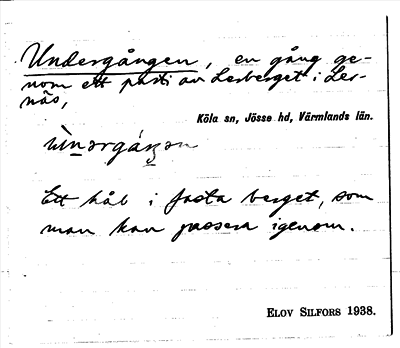 Undergången, en gång ge-
nom ett parti av Lesberget i Les-
näs,
Köla sn, Jösse hd, Värmlands län.
Ett hål i fasta berget, som
man kan passera igenom.
ELOV SILFORS 1938.